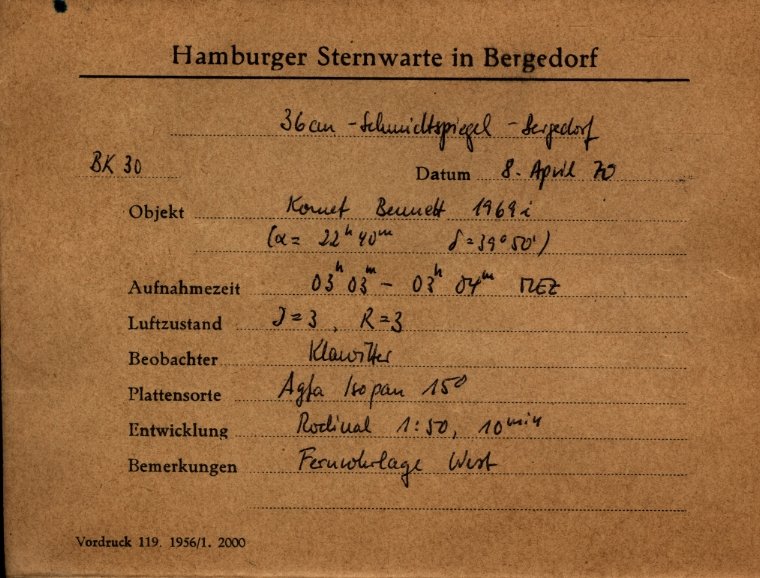 Hamburger Sternwarte in Bergedorf
36cm - Schmidtspiegel - Bergedorf
BK 30 Datum 8. April 70
Objekt Komet Bennett 1969i
(α = 22ʰ 40ᵐ δ = 39° 50')
Aufnahmezeit 03ʰ 03ᵐ - 03ʰ 04ᵐ MEZ
Luftzustand J = 3, R = 3
Beobachter Klawitter
Plattensorte Agfa Isopan 15°
Entwicklung Rodinal 1:50, 10ᵐⁱⁿ
Bemerkungen Fernrohrlage West
Vordruck 119. 1956/1. 2000